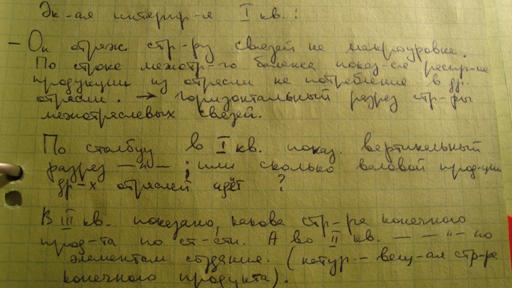 Эк-ая интерпр-я I кв.:
— Он отраж. стр-ру связей на макроуровне.
По строке межотр-го баланса показ-ся распр-ие
продукции из отрасли на потребление в др.
отрасли. → горизонтальный разрез стр-ры
межотраслевых связей.
По столбцу в I кв. показ. вертикальный
разрез —"— ; или сколько валовой прод-ции
др-х отраслей идёт ?
В III кв. показано, какова стр-ра конечного
прод-та по ст-сти. А во II кв. — — " — по
элементам создания. (натур.- вещ-ая стр-ра
конечного продукта).